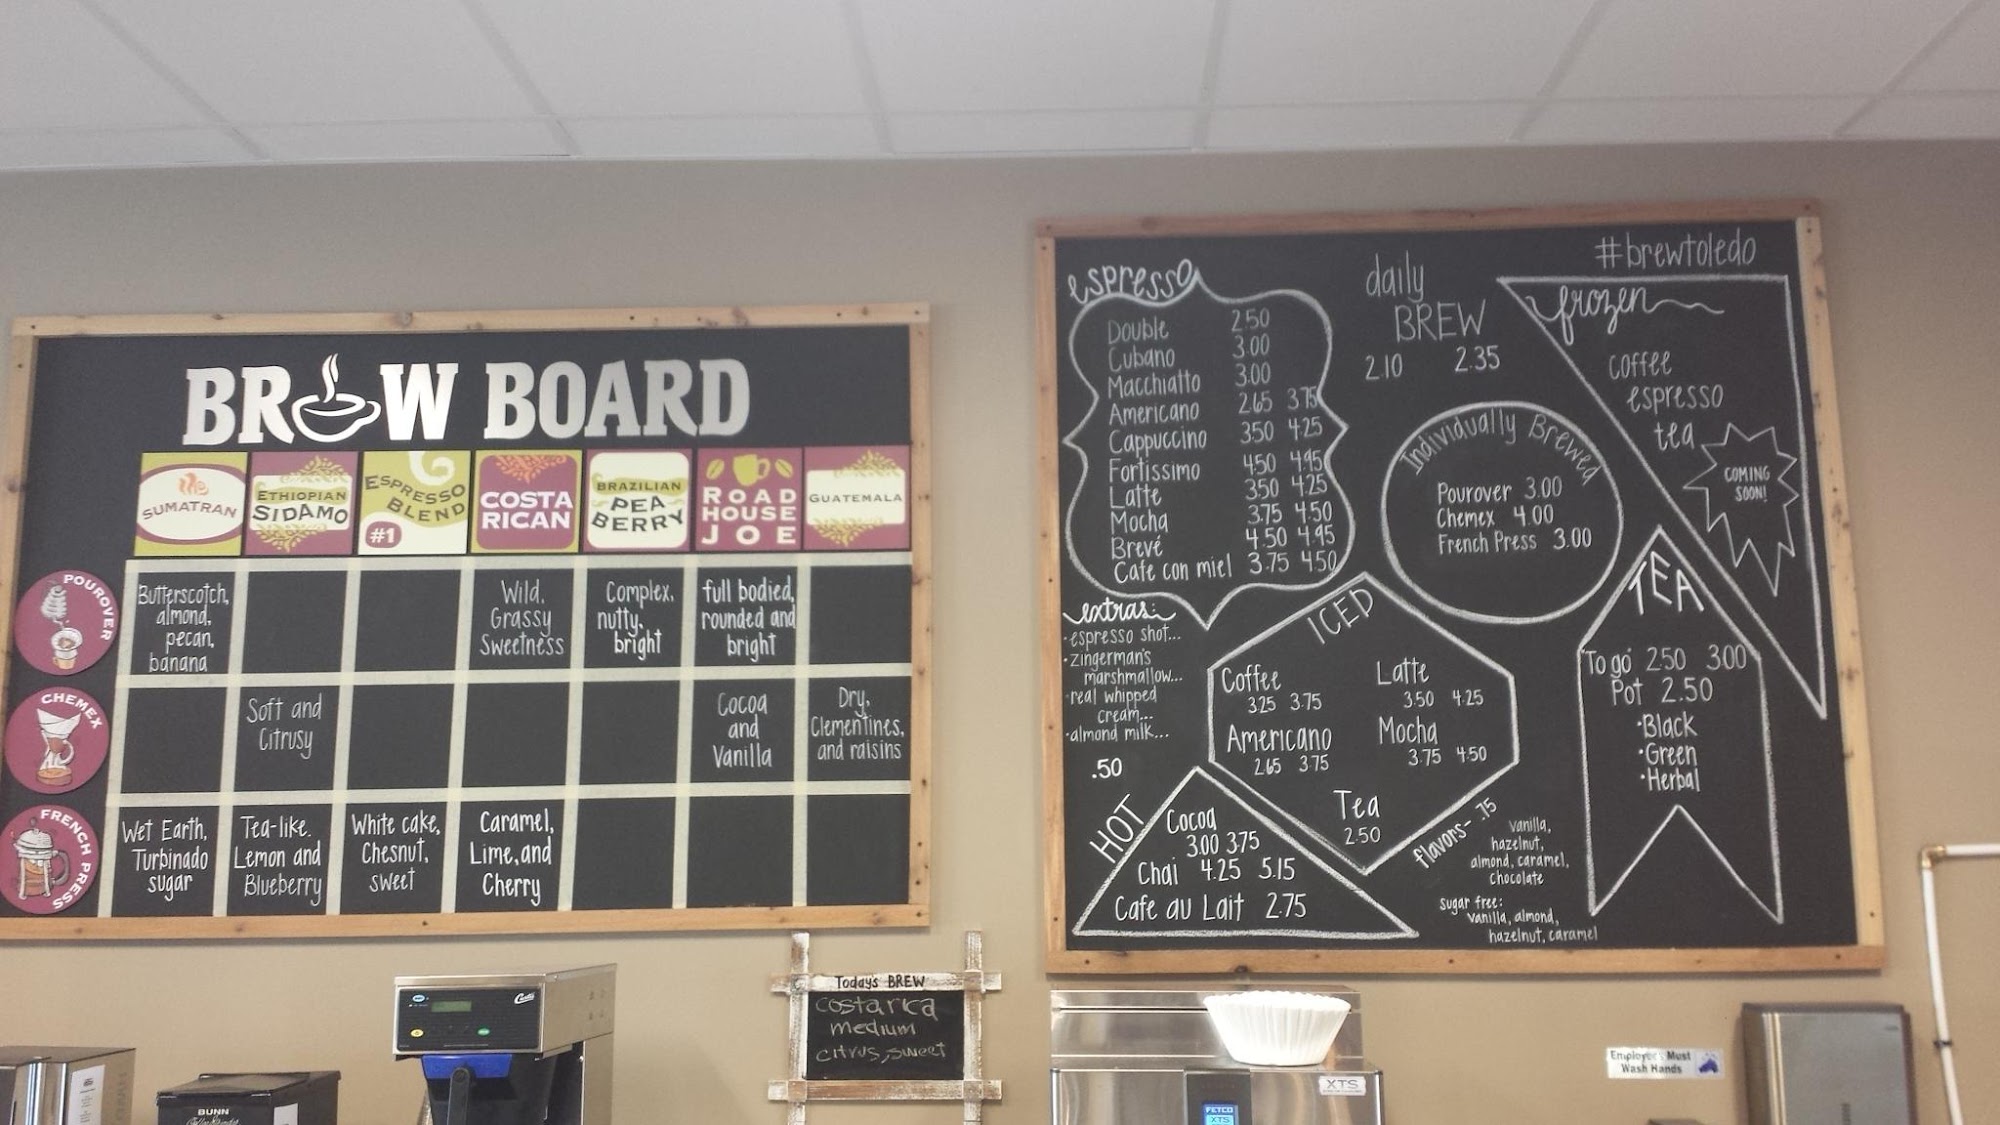 BREW BOARD
SUMATRAN
ETHIOPIAN
SIDAMO
ESPRESSO
BLEND
#1
COSTA
RICAN
BRAZILIAN
PEA
BERRY
ROAD
HOUSE
JOE
GUATEMALA
POUROVER
Butterscotch,
almond,
pecan,
banana
Wild,
Grassy
Sweetness
Complex,
nutty,
bright
full bodied,
rounded and
bright
CHEMEX
Soft and
Citrusy
Cocoa
and
Vanilla
Dry,
Clementines,
and raisins
FRENCH PRESS
Wet Earth,
Turbinado
sugar
Tea-like.
Lemon and
Blueberry
White cake,
Chesnut,
sweet
Caramel,
Lime, and
Cherry
espresso
Double 2.50
Cubano 3.00
Macchiatto 3.00
Americano 2.65 3.75
Cappuccino 3.50 4.25
Fortissimo 4.50 4.95
Latte 3.50 4.25
Mocha 3.75 4.50
Brevé 4.50 4.95
Cafe con miel 3.75 4.50
extras:
·espresso shot...
·zingerman's
marshmallow...
·real whipped
cream...
·almond milk...
.50
daily
BREW
2.10 2.35
#brewtoledo
frozen
coffee
espresso
tea
COMING
SOON!
Individually Brewed
Pourover 3.00
Chemex 4.00
French Press 3.00
ICED
Coffee
3.25 3.75
Latte
3.50 4.25
Americano
2.65 3.75
Mocha
3.75 4.50
Tea
2.50
TEA
"To go" 2.50 3.00
Pot 2.50
·Black
·Green
·Herbal
HOT
Cocoa
3.00 3.75
Chai 4.25 5.15
Cafe au Lait 2.75
flavors- .75
vanilla,
hazelnut,
almond, caramel,
chocolate
sugar free:
vanilla, almond,
hazelnut, caramel
Today's BREW
costa rica
medium
citrus, sweet
Curtis
BUNN
XTS
FETCO
XTS
Employees Must
Wash Hands